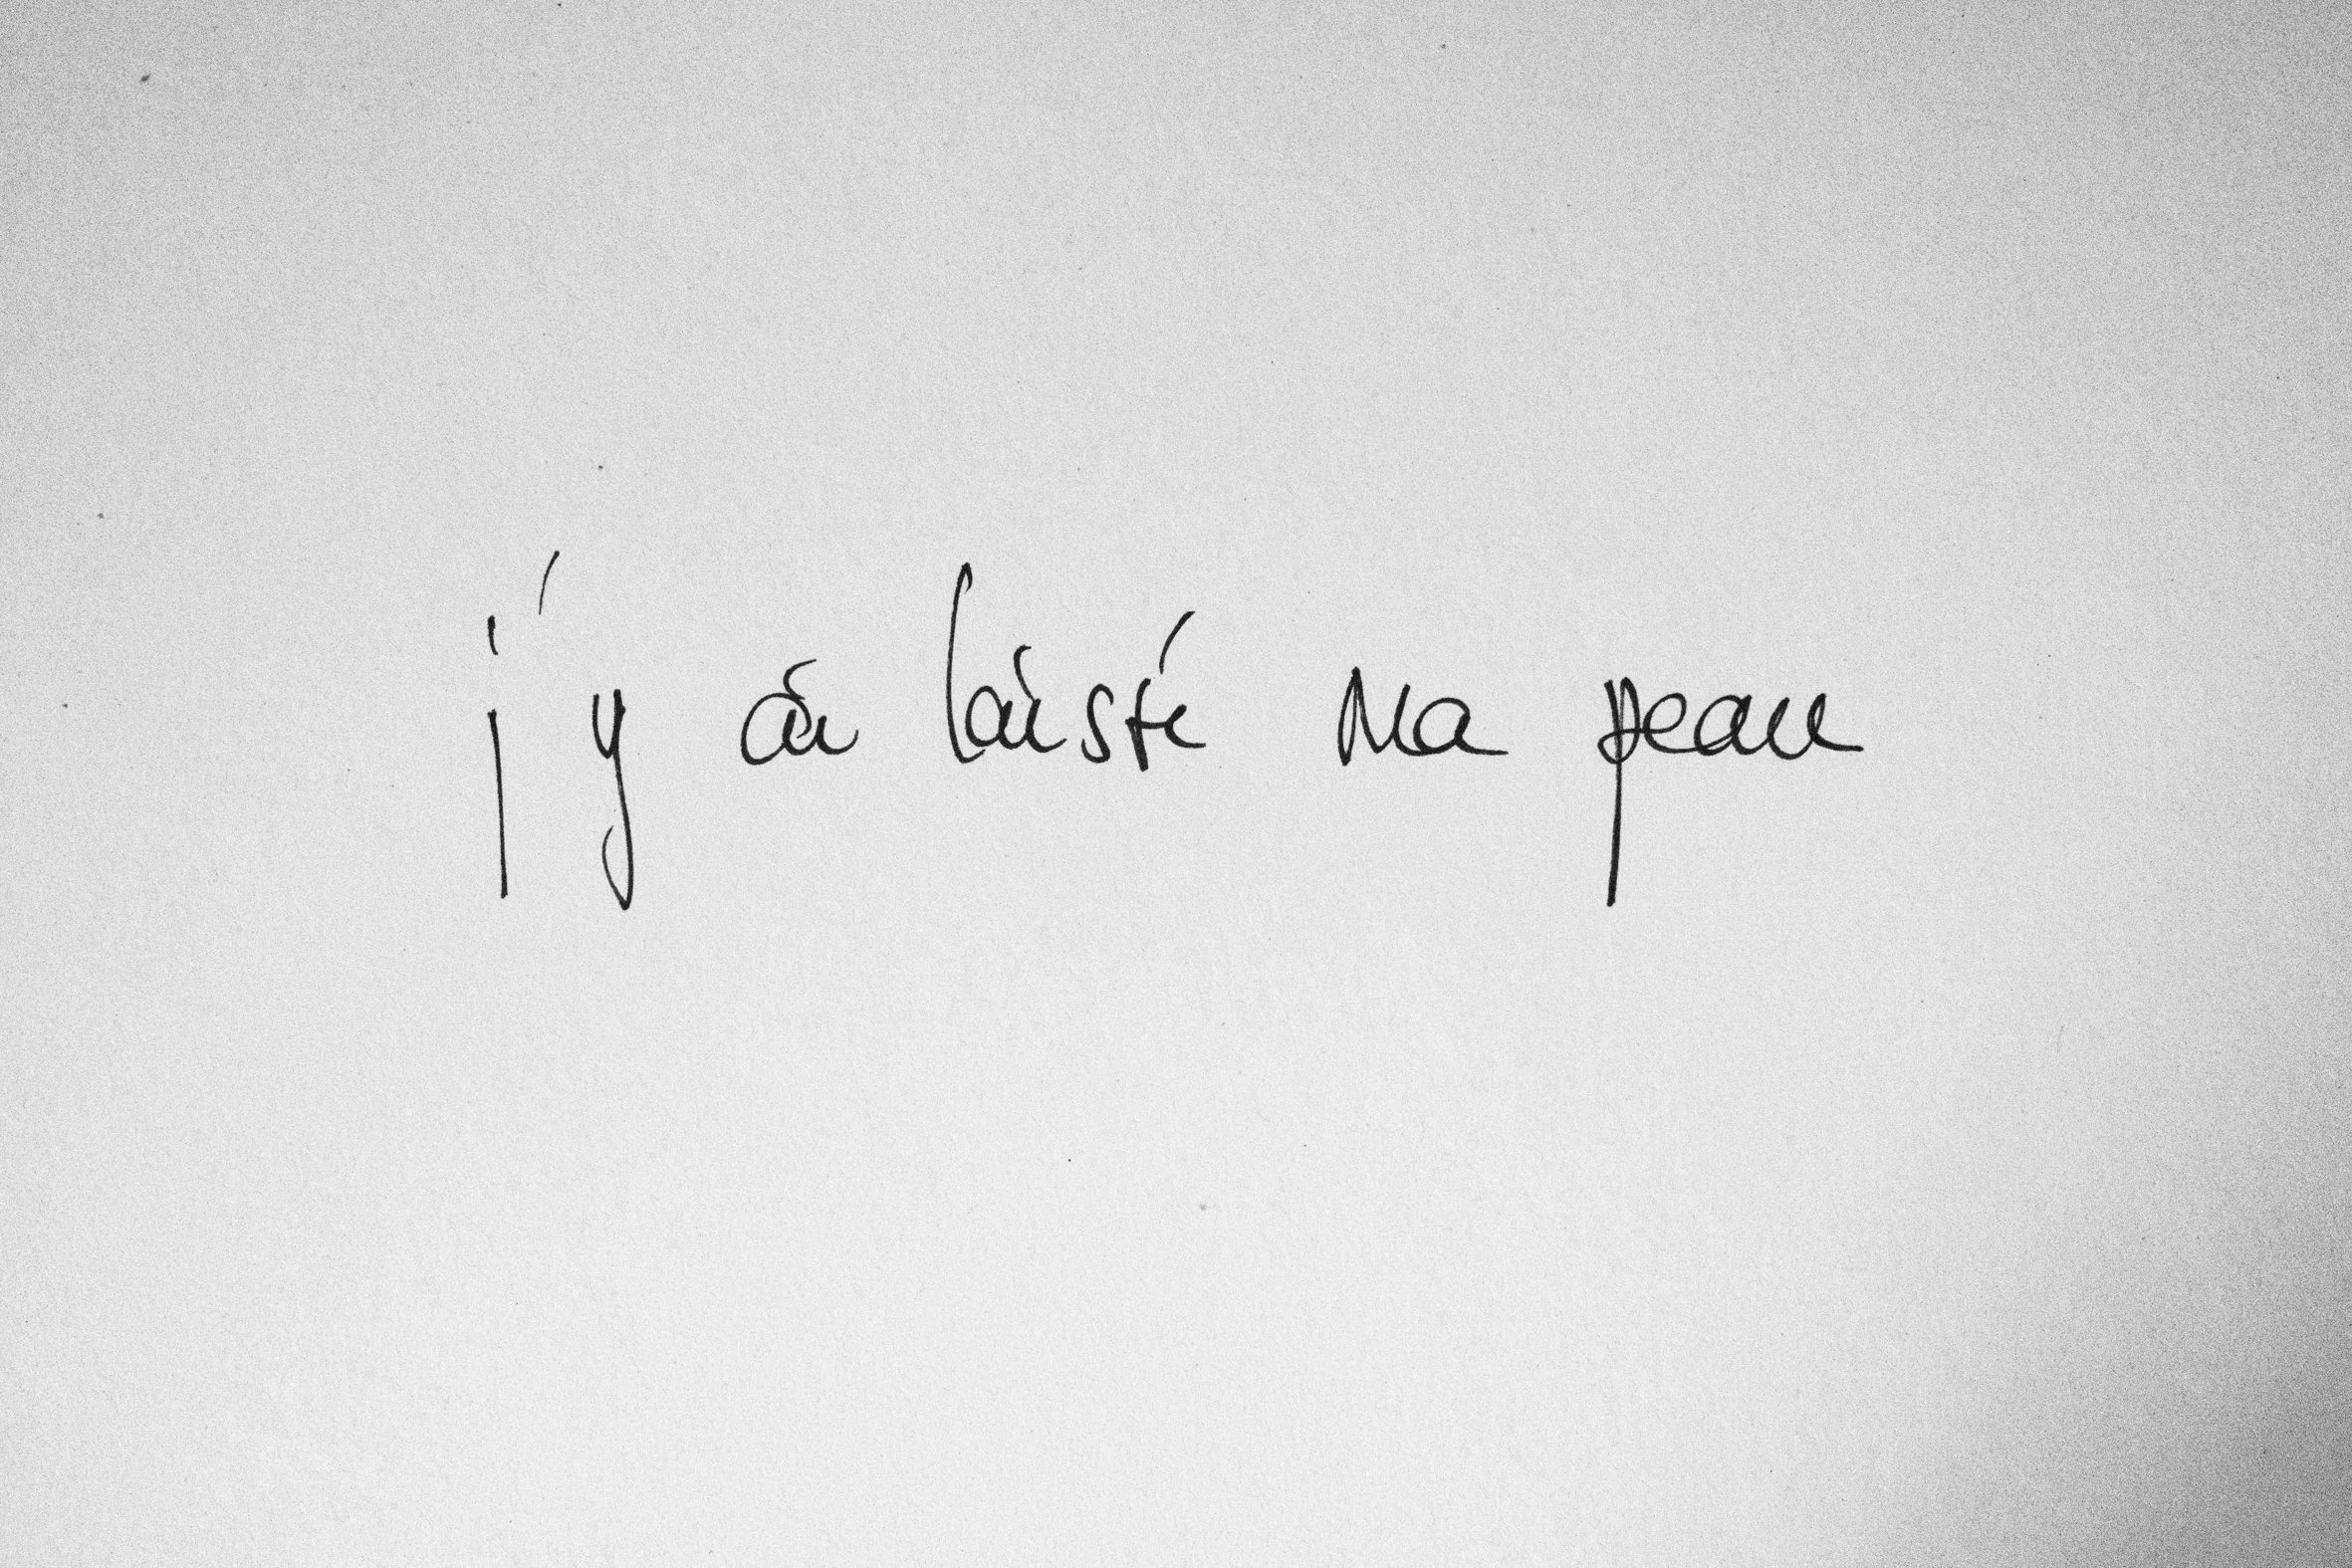 j'y ai laissé ma peau